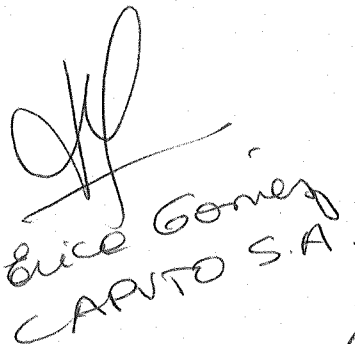 Erica Gomez
CAPUTO S.A.